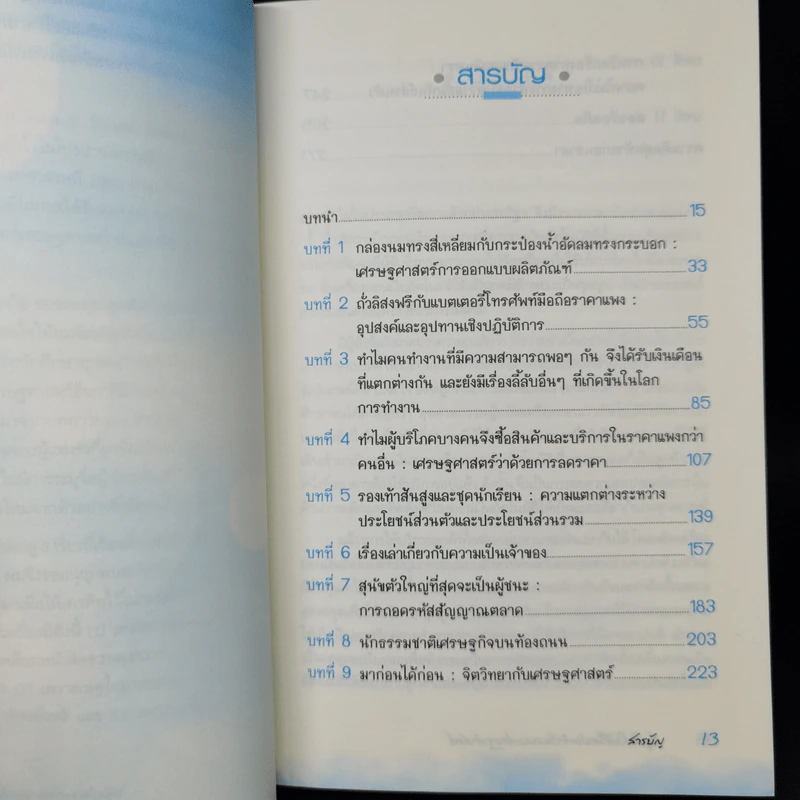 สารบัญ
บทนำ 15
บทที่ 1 กล่องนมทรงสี่เหลี่ยมกับกระป๋องน้ำอัดลมทรงกระบอก :
เศรษฐศาสตร์การออกแบบผลิตภัณฑ์ 33
บทที่ 2 ถั่วลิสงฟรีกับแบตเตอรี่โทรศัพท์มือถือราคาแพง :
อุปสงค์และอุปทานเชิงปฏิบัติการ 55
บทที่ 3 ทำไมคนทำงานที่มีความสามารถพอๆ กัน จึงได้รับเงินเดือน
ที่แตกต่างกัน และยังมีเรื่องลี้ลับอื่นๆ ที่เกิดขึ้นในโลก
การทำงาน 85
บทที่ 4 ทำไมผู้บริโภคบางคนจึงซื้อสินค้าและบริการในราคาแพงกว่า
คนอื่น : เศรษฐศาสตร์ว่าด้วยการลดราคา 107
บทที่ 5 รองเท้าส้นสูงและชุดนักเรียน : ความแตกต่างระหว่าง
ประโยชน์ส่วนตัวและประโยชน์ส่วนรวม 139
บทที่ 6 เรื่องเล่าเกี่ยวกับความเป็นเจ้าของ 157
บทที่ 7 สุนัขตัวใหญ่ที่สุดจะเป็นผู้ชนะ :
การถอดรหัสสัญญาณตลาด 183
บทที่ 8 นักธรรมชาติเศรษฐกิจบนท้องถนน 203
บทที่ 9 มาก่อนได้ก่อน : จิตวิทยากับเศรษฐศาสตร์ 223
สารบัญ 13